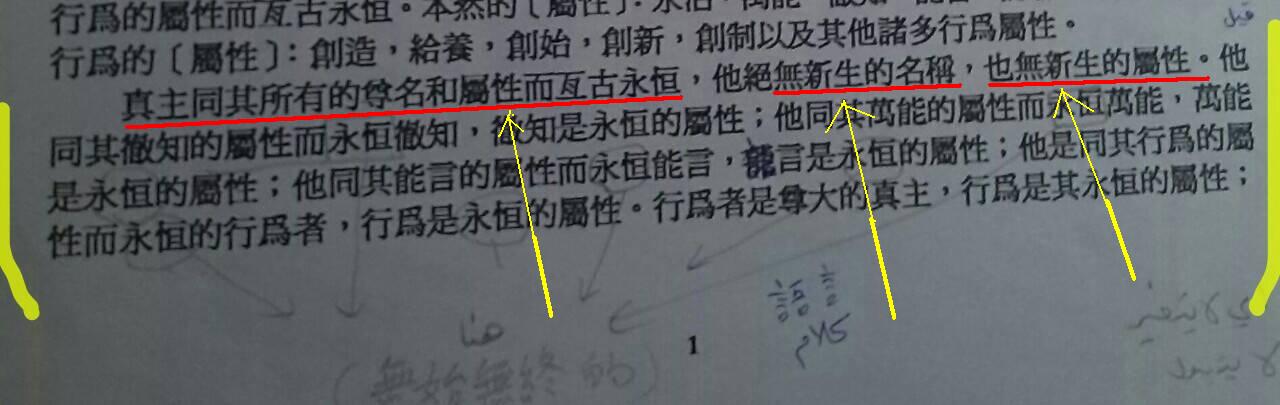 行爲的屬性而亙古永恒。本然的〔屬性〕:
行爲的〔屬性〕:創造,給養,創始,創新,創制以及其他諸多行爲屬性。
真主同其所有的尊名和屬性而亙古永恒,他絕無新生的名稱,也無新生的屬性。他
同其徹知的屬性而永恒徹知,徹知是永恒的屬性;他同其萬能的屬性而永恒萬能,萬能
是永恒的屬性;他同其能言的屬性而永恒能言,能言是永恒的屬性;他是同其行爲的屬
性而永恒的行爲者,行爲是永恒的屬性。行爲者是尊大的真主,行爲是其永恒的屬性;
كلام
هنا
(無始無終的)
1
لا يتغير
لا يتبدل